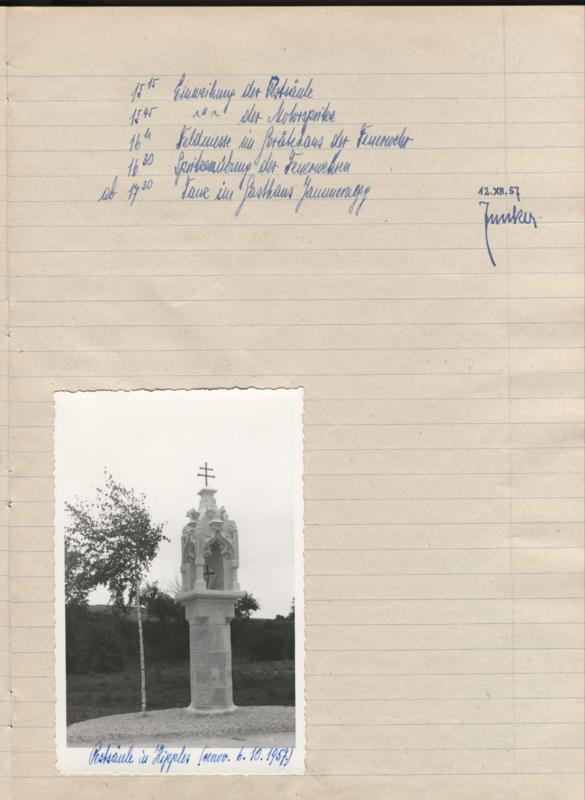 15 15 Einweihung der Pestsäule
15 45 " " " der Motorspritze
16 h Feldmesse im Gerätehaus der Feuerwehr
16 30 Spritzenübung der Feuerwehren
ab 17 30 Tanz im Gasthaus Jammernegg
12.XII.57
Junker
Pestsäule in Hipples (renov. 6.10.1957)